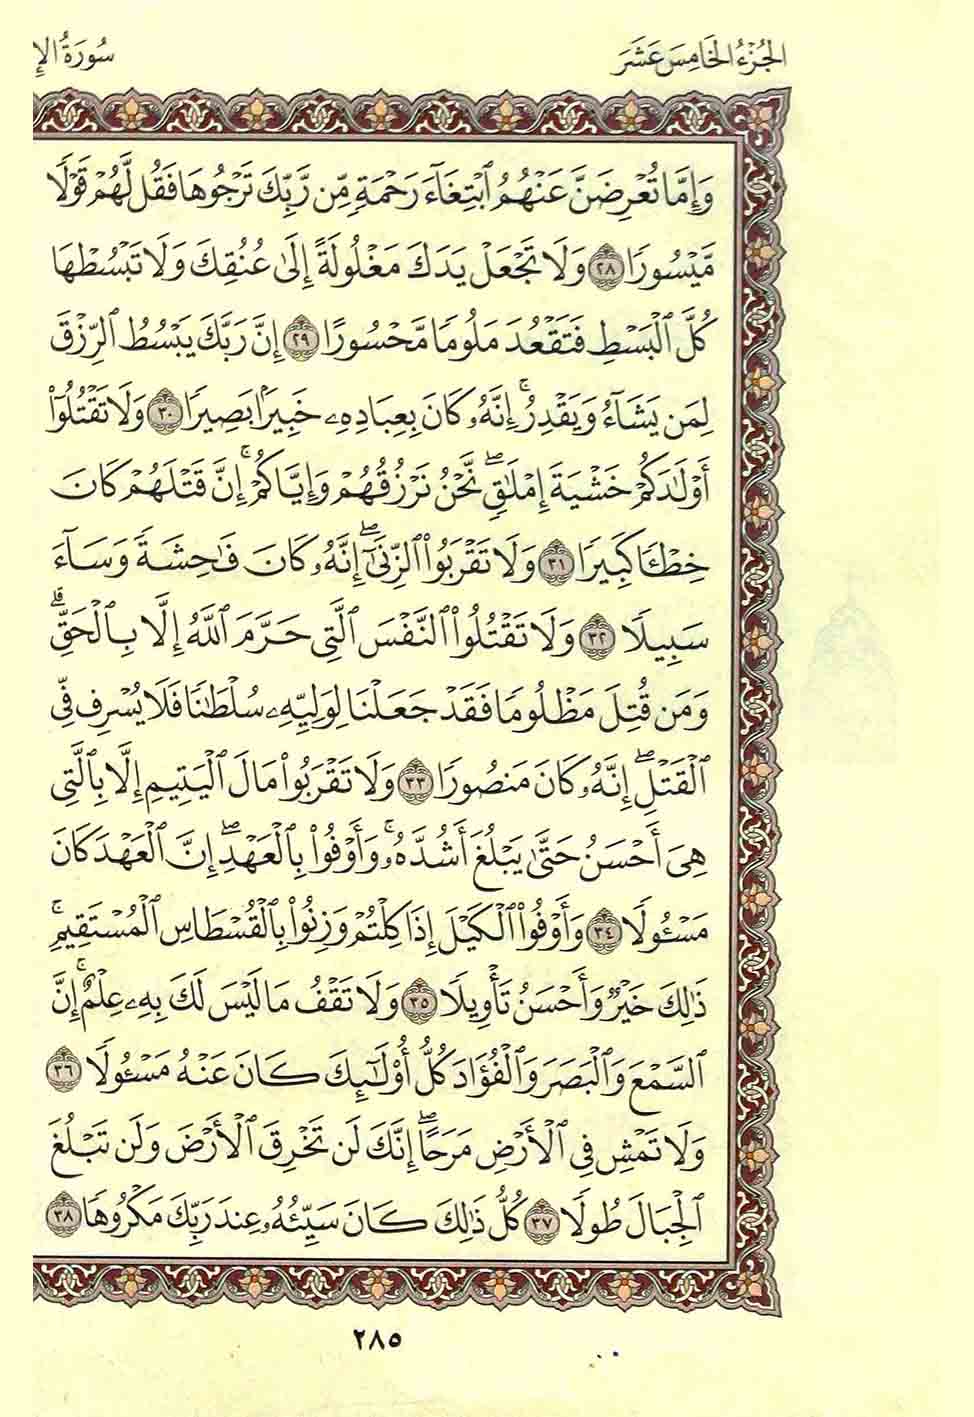 الجُزْءُ الخَامِسَ عَشَرَ
سُورَةُ الإِ
وَإِمَّا تُعْرِضَنَّ عَنْهُمُ ٱبْتِغَآءَ رَحْمَةٍ مِّن رَّبِّكَ تَرْجُوهَا فَقُل لَّهُمْ قَوْلًا
مَّيْسُورًا ٢٨ وَلَا تَجْعَلْ يَدَكَ مَغْلُولَةً إِلَىٰ عُنُقِكَ وَلَا تَبْسُطْهَا
كُلَّ ٱلْبَسْطِ فَتَقْعُدَ مَلُومًا مَّحْسُورًا ٢٩ إِنَّ رَبَّكَ يَبْسُطُ ٱلرِّزْقَ
لِمَن يَشَآءُ وَيَقْدِرُ ۚ إِنَّهُۥ كَانَ بِعِبَادِهِۦ خَبِيرًۢا بَصِيرًا ٣٠ وَلَا تَقْتُلُوٓا۟
أَوْلَـٰدَكُمْ خَشْيَةَ إِمْلَـٰقٍ ۖ نَّحْنُ نَرْزُقُهُمْ وَإِيَّاكُمْ ۚ إِنَّ قَتْلَهُمْ كَانَ
خِطْـًٔا كَبِيرًا ٣١ وَلَا تَقْرَبُوا۟ ٱلزِّنَىٰٓ ۖ إِنَّهُۥ كَانَ فَـٰحِشَةً وَسَآءَ
سَبِيلًا ٣٢ وَلَا تَقْتُلُوا۟ ٱلنَّفْسَ ٱلَّتِى حَرَّمَ ٱللَّهُ إِلَّا بِٱلْحَقِّ ۗ
وَمَن قُتِلَ مَظْلُومًا فَقَدْ جَعَلْنَا لِوَلِيِّهِۦ سُلْطَـٰنًا فَلَا يُسْرِف فِّى
ٱلْقَتْلِ ۖ إِنَّهُۥ كَانَ مَنصُورًا ٣٣ وَلَا تَقْرَبُوا۟ مَالَ ٱلْيَتِيمِ إِلَّا بِٱلَّتِى
هِىَ أَحْسَنُ حَتَّىٰ يَبْلُغَ أَشُدَّهُۥ ۚ وَأَوْفُوا۟ بِٱلْعَهْدِ ۖ إِنَّ ٱلْعَهْدَ كَانَ
مَسْـُٔولًا ٣٤ وَأَوْفُوا۟ ٱلْكَيْلَ إِذَا كِلْتُمْ وَزِنُوا۟ بِٱلْقُسْطَاسِ ٱلْمُسْتَقِيمِ ۚ
ذَٰلِكَ خَيْرٌ وَأَحْسَنُ تَأْوِيلًا ٣٥ وَلَا تَقْفُ مَا لَيْسَ لَكَ بِهِۦ عِلْمٌ ۚ إِنَّ
ٱلسَّمْعَ وَٱلْبَصَرَ وَٱلْفُؤَادَ كُلُّ أُو۟لَـٰٓئِكَ كَانَ عَنْهُ مَسْـُٔولًا ٣٦
وَلَا تَمْشِ فِى ٱلْأَرْضِ مَرَحًا ۖ إِنَّكَ لَن تَخْرِقَ ٱلْأَرْضَ وَلَن تَبْلُغَ
ٱلْجِبَالَ طُولًا ٣٧ كُلُّ ذَٰلِكَ كَانَ سَيِّئُهُۥ عِندَ رَبِّكَ مَكْرُوهًا ٣٨
٢٨٥